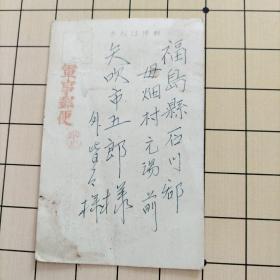 郵便はがき
軍事郵便
福島縣石川郡
母畑村元湯前
矢吹市五郎様
外皆々様